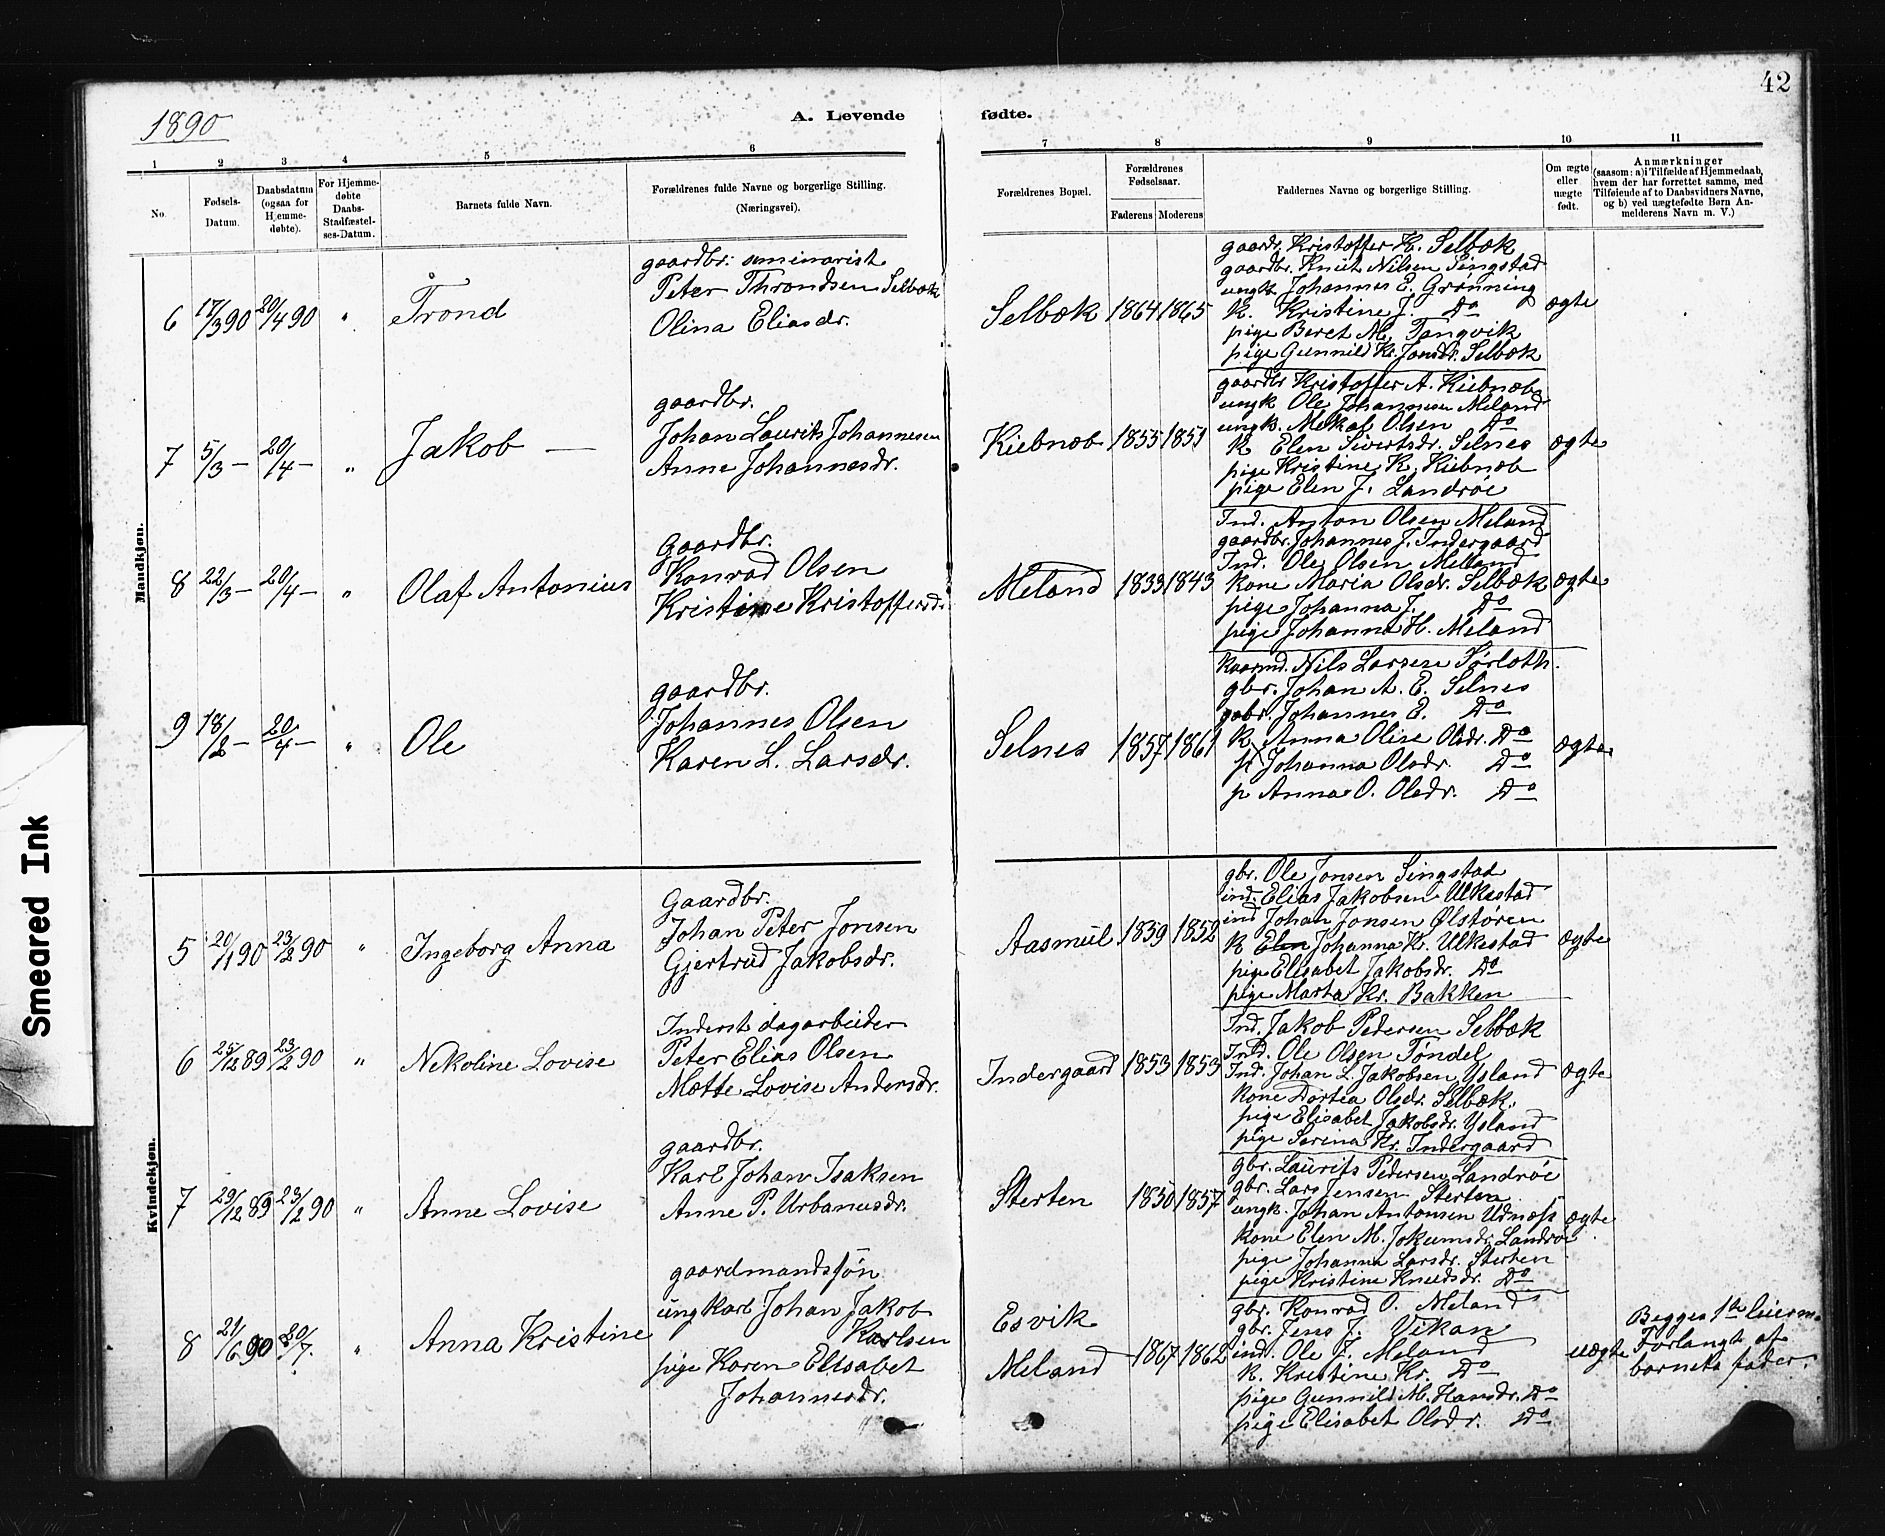 42
1890
A. Levende fødte.
1 2 3 4 5 6 7 8 9 10 11
No.
Fødsels-
Datum.
Daabsdatum
(ogsaa for
Hjemme-
døbte).
For Hjemme-
døbte
Daabs-
Stadfæstel-
ses-Datum.
Barnets fulde Navn.
Forældrenes fulde Navne og borgerlige Stilling.
(Næringsvei).
Forældrenes Bopæl.
Forældrenes
Fødselsaar.
Faderens Moderens
Faddernes Navne og borgerlige Stilling.
Om ægte
eller
uægte
født.
Anmærkninger
(saasom: a) i Tilfælde af Hjemmedaab,
hvem der har forrettet samme, med
Tilføiende af to Daabsvidners Navne,
og b) ved uægtefødte Børn An-
melderens Navn m. V.)
Mandkjøn.
6 17/3 90 20/4 90 " Trond
gaardbr: seminarist
Peter Throndsen Selbæk
Olina Eliasdr.
Selbæk 1864 1865
gaardr. Kristoffer H. Selbæk
gaardbr. Knut Nilsen Singstad
ungk. Johannes E. Grønning
K. Kristine J. Do
pige Beret M. Tangvik
pige Gunnild K. Jonsdr. Selbæk
ægte
7 5/3 — 20/4 — " Jakob —
gaardbr.
Johan Laurits Johannesen
Anne Johannesdr.
Kiebnæb 1855 1851
gaardbr Kristoffer A. Kiebnæb
ungk Ole Johannesen Meland
ungk. Mekal Olsen Do
K Elen Sivertsdr. Selnes
pige Kristine K. Kiebnæb
pige Elen J. Landrøe
ægte
8 22/3 — 20/4 — " Olaf Antonius
Gaardbr.
Konrad Olsen
Kristine Kristoffersdr.
Meland 1833 1843
Ind. Anton Olsen Meland
gaardbr. Johannes J. Indergaard
Ind. Ole Olsen Melland
kone Maria Olsdr. Selbæk
pige Johanna J. Do
pige Johanna H. Meland
ægte
9 18/2 — 20/4 — " Ole
gaardbr.
Johannes Olsen
Karen L. Larsdr.
Selnes 1857 1861
kaarmd. Nils Larsen Sørloth.
gbr. Johan A. E. Selnes
gabr. Johannes E. Do
K Anna Olise Olsdr. Do
p Johanna Olsdr. Do
p Anna O. Olsdr. Do
ægte
Kvindekjøn.
5 20/1 90 23/2 90 " Ingeborg Anna
Gaardbr.
Johan Peter Jonsen
Gjertrud Jakobsdr.
Aasmul 1839 1852
gbr. Ole Jonsen Singstad
ind. Elias Jakobsen Ulkestad
ind Johan Jonsen Ølstøren
K Elen Johanna K. Ulkestad
pige Elisabet Jakobsdr. Do
pige Marta Kr. Bakken
ægte
6 25/12 89 23/2 90 " Nekoline Lovise
Inderst dagarbeider
Peter Elias Olsen
Mætte Lovise Andersdr.
Indergaard 1853 1853
Ind. Jakob Pedersen Selbæk
Ind. Ole Olsen Tøndel
Ind. Johan L. Jakobsen Ysland
kone Dortea Olsdr. Selbæk.
pige Elisabet Jakobsdr. Ysland
pige Serina Kr. Indergaard
ægte
7 29/12 89 23/2 90 " Anne Lovise
gaardbr.
Karl Johan Isaksen
Anne P. Urbanusdr.
Sterten 1850 1857
gbr. Laurits Pedersen Landrøe
gbr. Lars Jensen Sterten
ungk. Johan Antonsen Udnæss
kone Elen M. Jokumsdr. Landrøe
pige Johanna Larsdr. Sterten
pige Kristine Knudsdr. Do
ægte
8 21/6 90 20/7. " Anna Kristine
gaardmandssøn
ungkarl Johan Jakob
Karlsen
pige Karen Elisabet
Johannesdr.
Esvik
Meland 1867 1862
gbr. Konrad O. Meland
gbr. Jens J. Vikan
ind. Ole J. Meland
K. Kristine Kr. Do
pige Gunnild M. Hansdr. Do
pige Elisabet Olsdr. Do
uægte
Begges 1ste leierm.
Forlangt af
barnets fader.
Smeared Ink